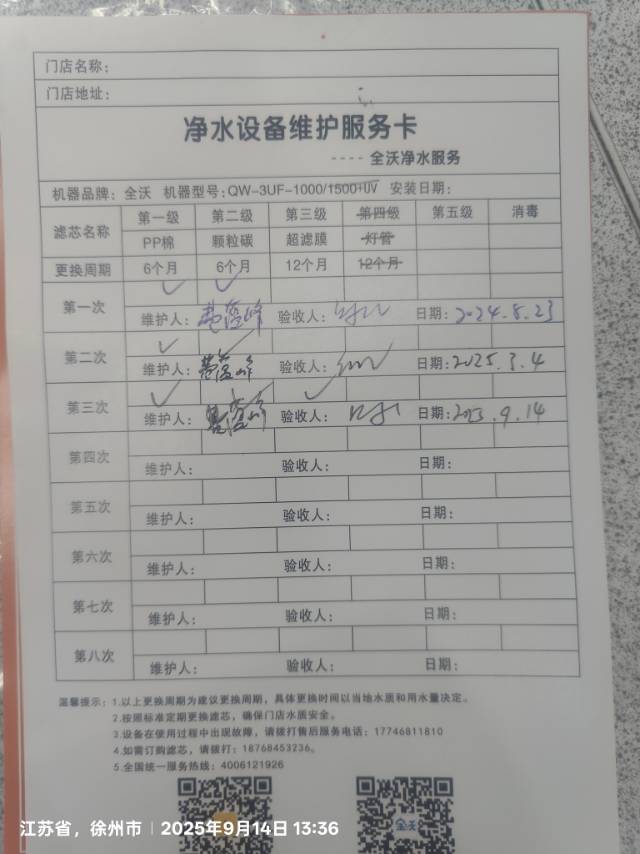 门店名称：
门店地址：
净水设备维护服务卡
---- 全沃净水服务
机器品牌：全沃 机器型号：QW-3UF-1000/1500+UV 安装日期：
滤芯名称 第一级 第二级 第三级 第四级 第五级 消毒
PP棉 颗粒碳 超滤膜 灯管
更换周期 6个月 6个月 12个月 12个月
第一次 ✓ ✓
维护人： 验收人： 日期：2024.8.23
第二次 ✓ ✓
维护人： 验收人： 日期：2025.3.4
第三次 ✓ ✓ ✓
维护人： 验收人： 日期： .9.14
第四次
维护人： 验收人： 日期：
第五次
维护人： 验收人： 日期：
第六次
维护人： 验收人： 日期：
第七次
维护人： 验收人： 日期：
第八次
维护人： 验收人： 日期：
温馨提示：1.以上更换周期为建议更换周期，具体更换时间以当地水质和用水量决定。
2.按照标准定期更换滤芯，确保门店水质安全。
3.设备在使用过程中出现故障，请拨打售后服务电话：17746811810
4.如需订购滤芯，请拨打：18768453236。
5.全国统一服务热线：4006121926
全沃
江苏省，徐州市 | 2025年9月14日 13:36